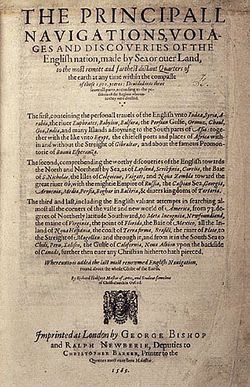 THE PRINCIPALL
NAVIGATIONS, VOIA-
GES AND DISCOVERIES OF THE
English nation, made by Sea or ouer Land,
to the most remote and farthest distant Quarters of
the earth at any time within the compasse
of these 1500. yeeres: Deuided into three
seuerall parts, according to the po-
sitions of the Regions wherun-
to they were directed.
The first, conteining the personall trauels of the English vnto Iudæa, Syria, A-
rabia, the riuer Euphrates, Babylon, Balsara, the Persian Gulfe, Ormuz, Chaul,
Goa, India, and many Islands adioyning to the South parts of Asia: toge-
ther with the like vnto Egypt, the chiefest ports and places of Africa with-
in and without the Streight of Gibraltar, and about the famous Promon-
torie of Buona Esperanza.
The second, comprehending the worthy discoueries of the English towards
the North and Northeast by Sea, as of Lapland, Scrikfinia, Corelia, the Baie
of S. Nicholas, the Isles of Colgoieue, Vaigats, and Noua Zembla toward the
great riuer Ob, with the mighty Empire of Russia, the Caspian Sea, Georgia,
Armenia, Media, Persia, Boghar in Bactria, & diuers kingdoms of Tartaria.
The third and last, including the English valiant attempts in searching al-
most all the corners of the vaste and new world of America, from 73. de-
grees of Northerly latitude Southward, to Meta Incognita, Newfoundland,
the maine of Virginia, the point of Florida, the Baie of Mexico, all the In-
land of Noua Hispania, the coast of Terra firma, Brasill, the riuer of Plate, to
the Streight of Magellan: and through it, and from it in the South Sea to
Chili, Peru, Xalisco, the Gulfe of California, Noua Albion vpon the backside
of Canada, further then euer any Christian hitherto hath pierced.
Whereunto is added the last most renowmed English Nauigation,
round about the whole Globe of the Earth.
By Richard Hakluyt Master of Artes, and Student sometime
of Christ-church in Oxford.
Imprinted at London by GEORGE BISHOP
and RALPH NEWBERIE, Deputies to
CHRISTOPHER BARKER, Printer to the
Queenes most excellent Maiestie.
1589.